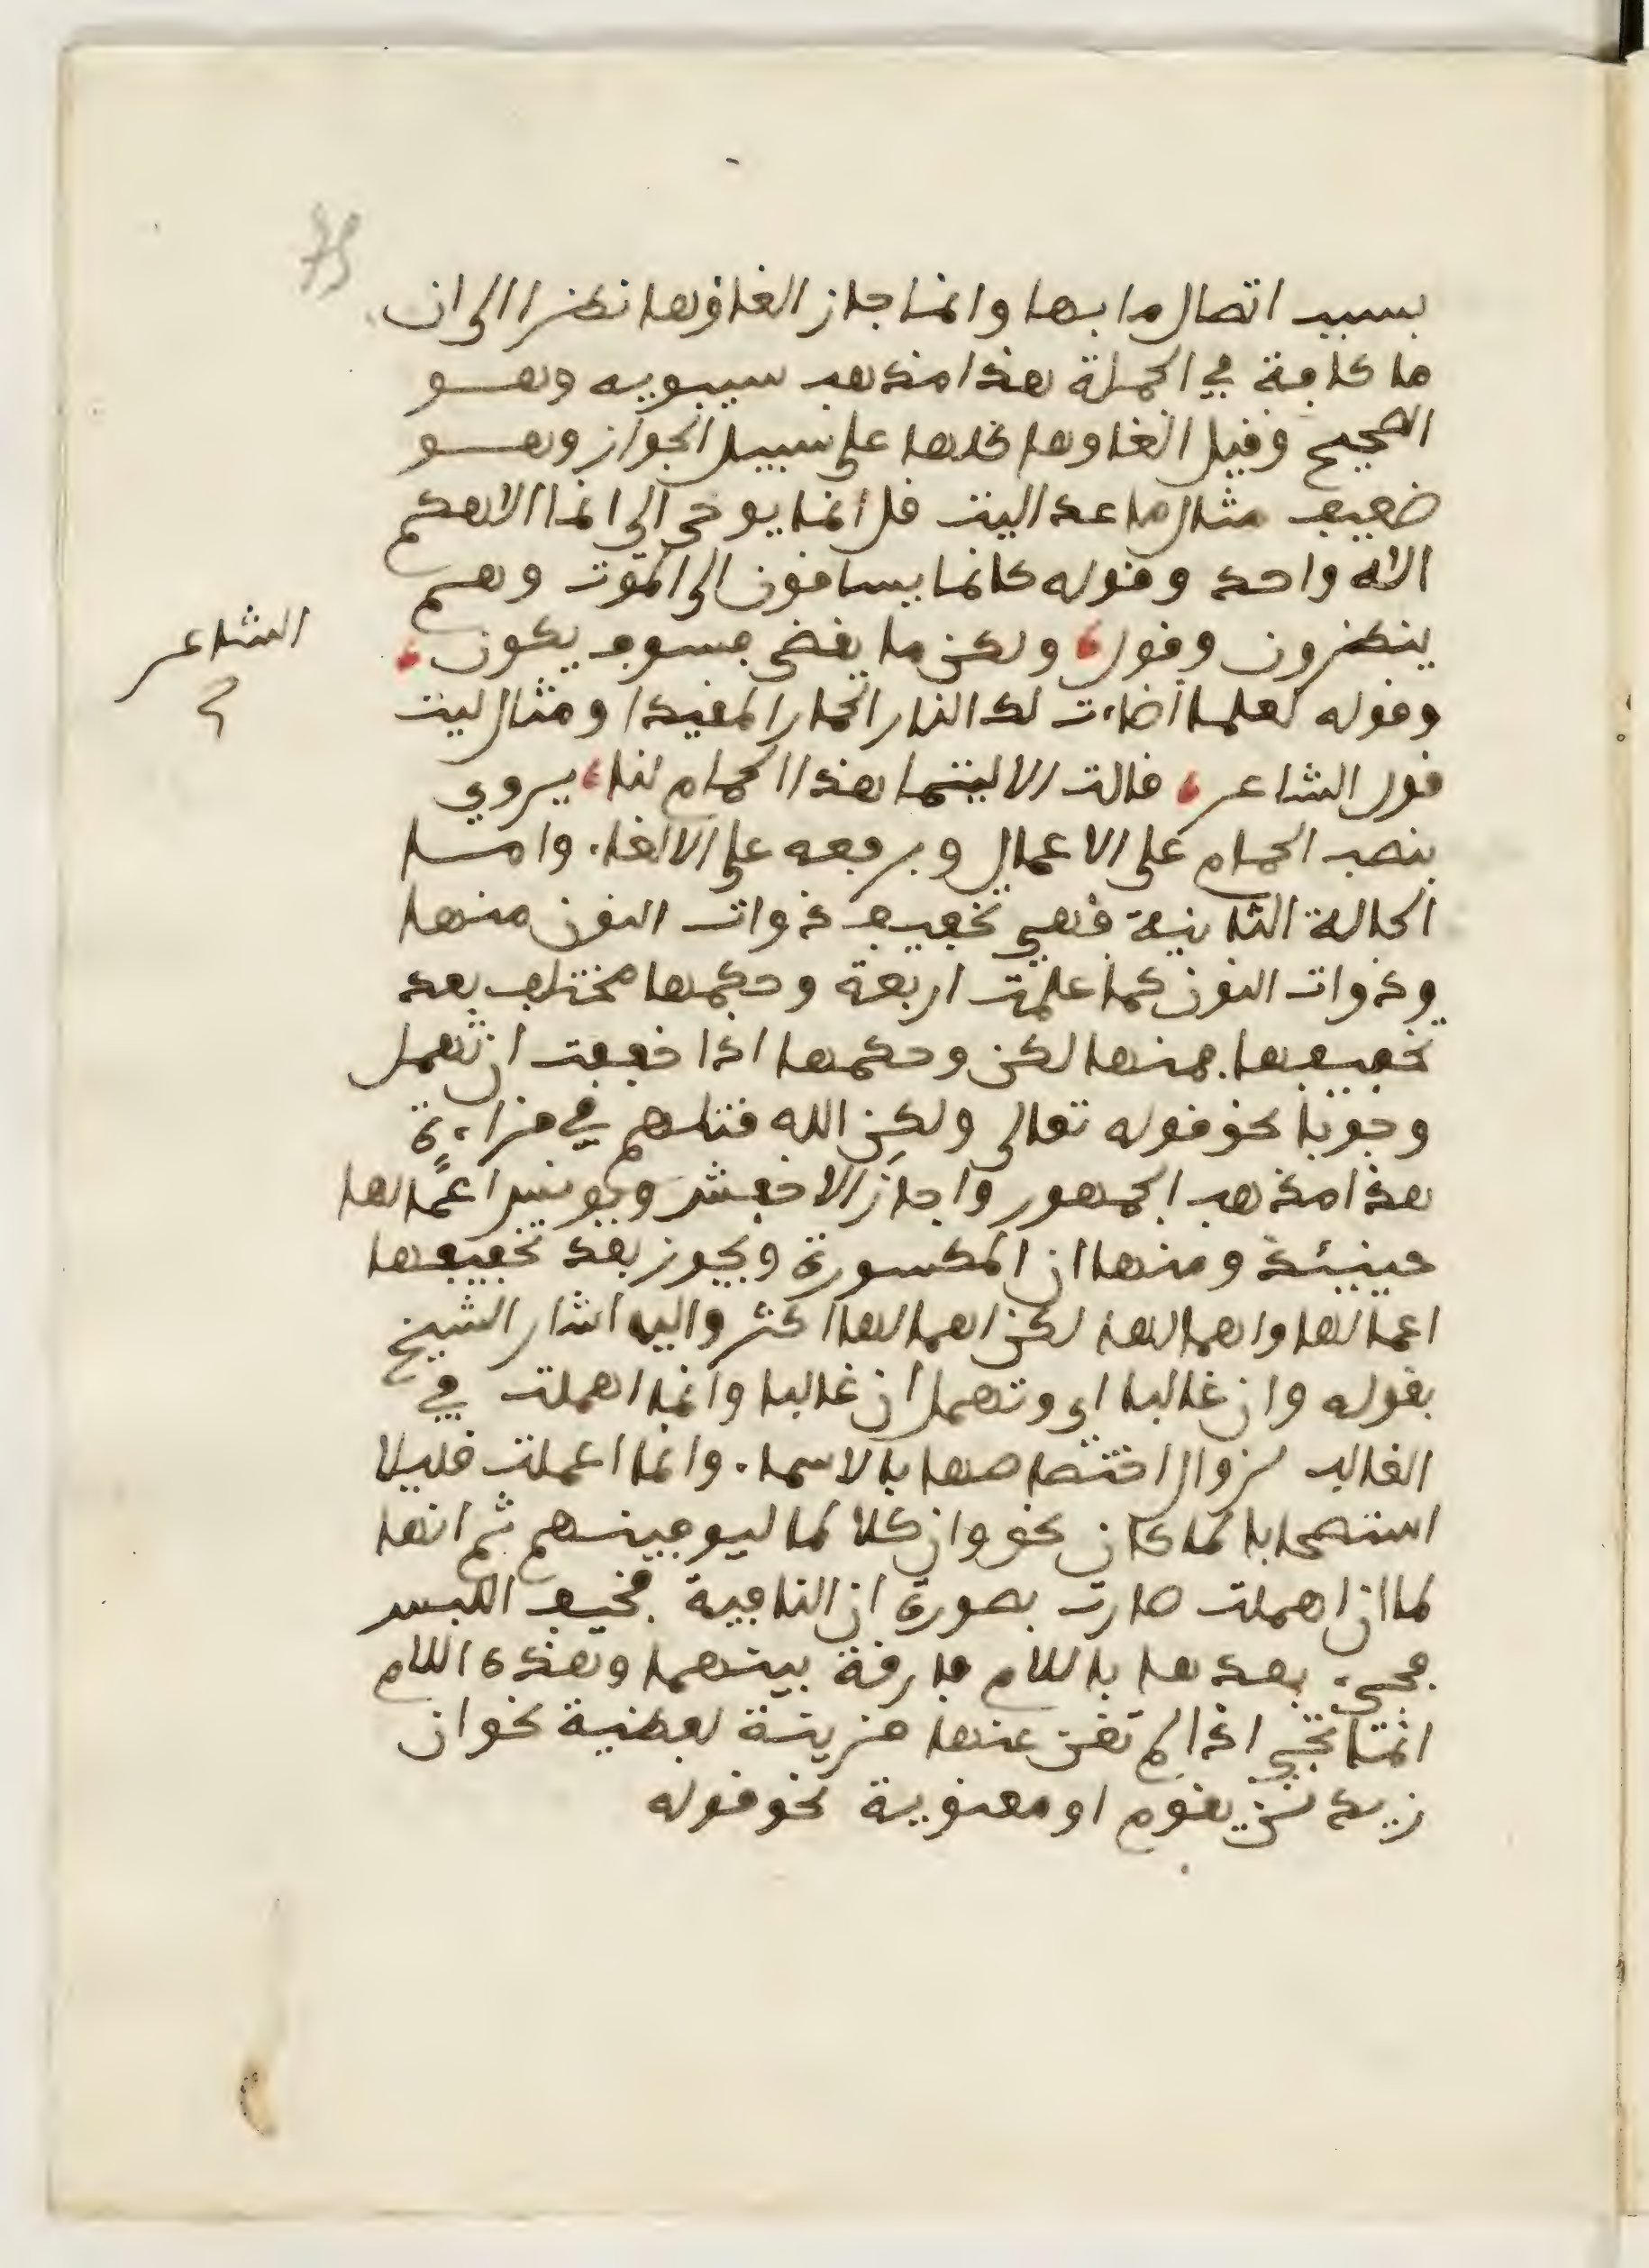 بسبب اتصال ما بها وانما جاز الغاؤها نظرا الى ان
ما كافة في الجملة هذا مذهب سيبويه وهو
الصحيح وقيل الغاوها كلها على سبيل الجواز وهو
ضعيف مثال ما عدا ليت قل انما يوحى الي انما الاهكم
الاه واحد وقوله كانما يساقون الى الموت وهم
ينظرون وقول، ولكن ما يقضى فسوف يكون،
الشاعر
وقوله لعلما اضاءت لك النار الحمار المقيدا ومثال ليت
قول الشاعر، قالت الا ليتما هذا الحمام لنا، يروي
بنصب الحمام على الاعمال وبرفعه على الالغاء واما
الحالة الثانية فهي تخفيف ذوات النون منها
وذوات النون كما علمت اربعة وحكمها مختلف بعد
تخفيفها فمنها لكن وحكمها اذا خففت ان تهمل
وجوبًا نحو قوله تعالى ولكن الله قتلهم في قراءة
هذا مذهب الجمهور واجاز الاخفش ويونس اعمالها
حينئذ ومنها ان المكسورة ويجوز بعد تخفيفها
اعمالها واهمالها لكن اهمالها اكثر واليه اشار الشيخ
بقوله وان غالبا اي وتهمل ان غالبا وانما اهملت في
الغالب لزوال اختصاصها بالاسماء وانما اعملت قليلا
استصحابا لما كان نحو وان كلا لما ليوفينهم ثم انها
لما ان اهملت صارت بصورة ان النافية فخيف اللبس
فجيء بعدها باللام فارقة بينهما وهذه اللام
انما تجي اذا لم تغن عنها قرينة لفظية نحو ان
زيد لن يقوم او معنوية نحو قوله